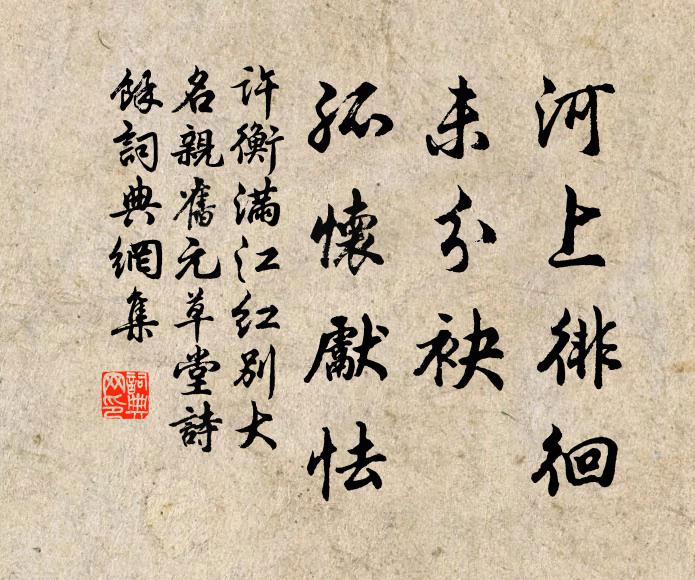 河上徘徊
未分袂
孤懷獻怯
許衡滿江紅別大
名親舊元草堂詩
餘詞典網集
詞典
网印